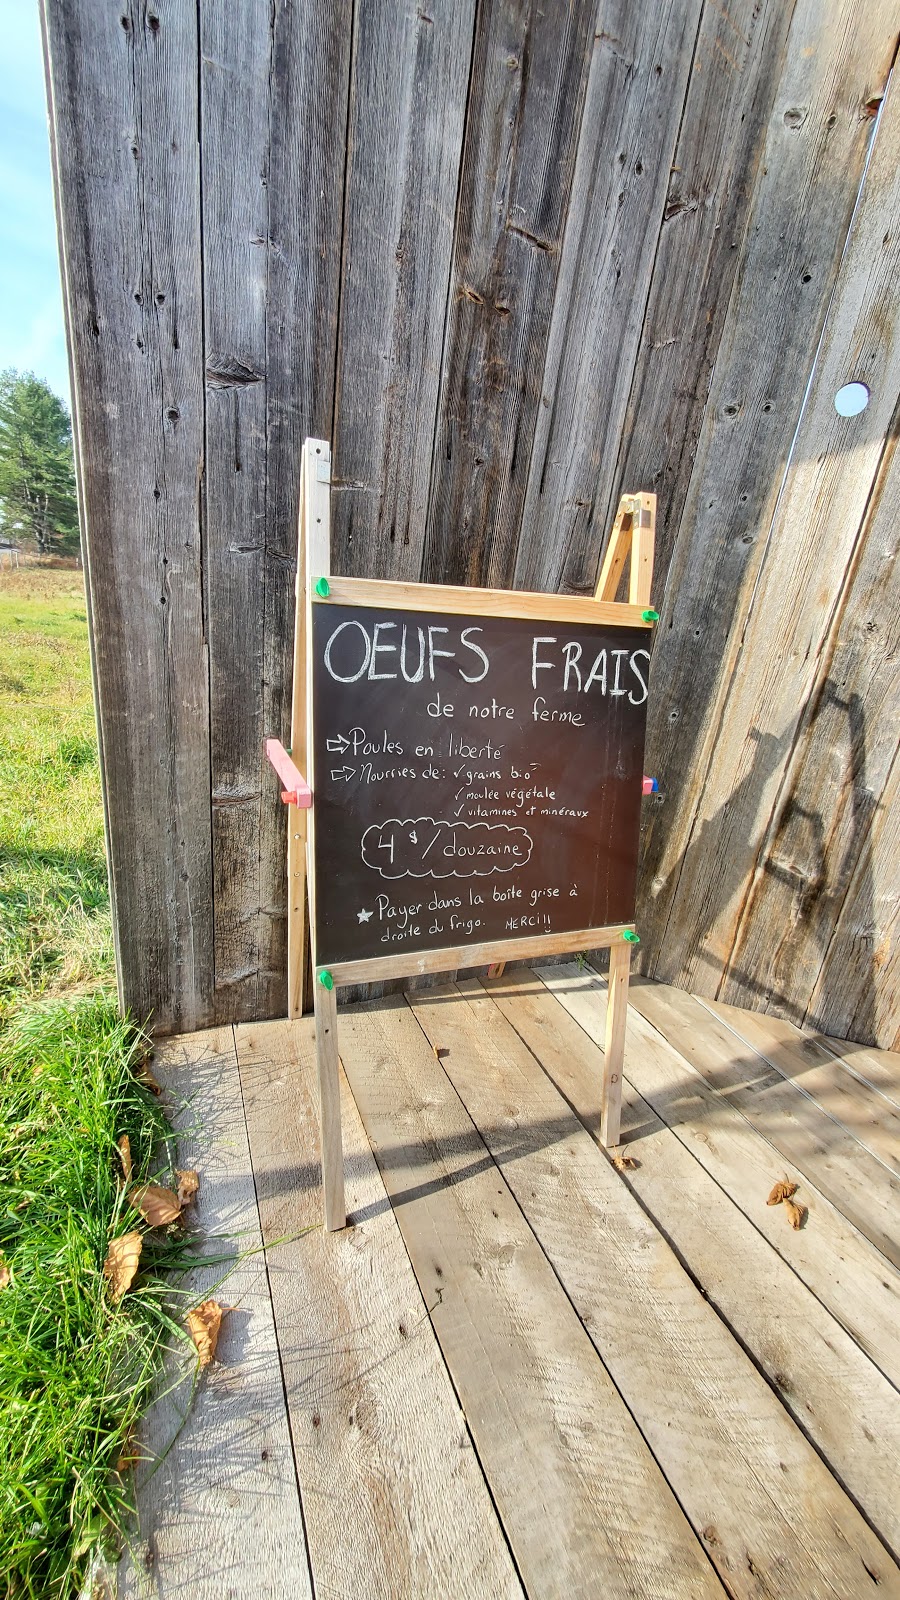 OEUFS FRAIS
de notre ferme
⇨ Poules en liberté
⇨ Nourries de: ✓ grains bio
✓ moulée végétale
✓ vitamines et minéraux
4$/douzaine
★ Payer dans la boîte grise à
droite du frigo. MERCI!!